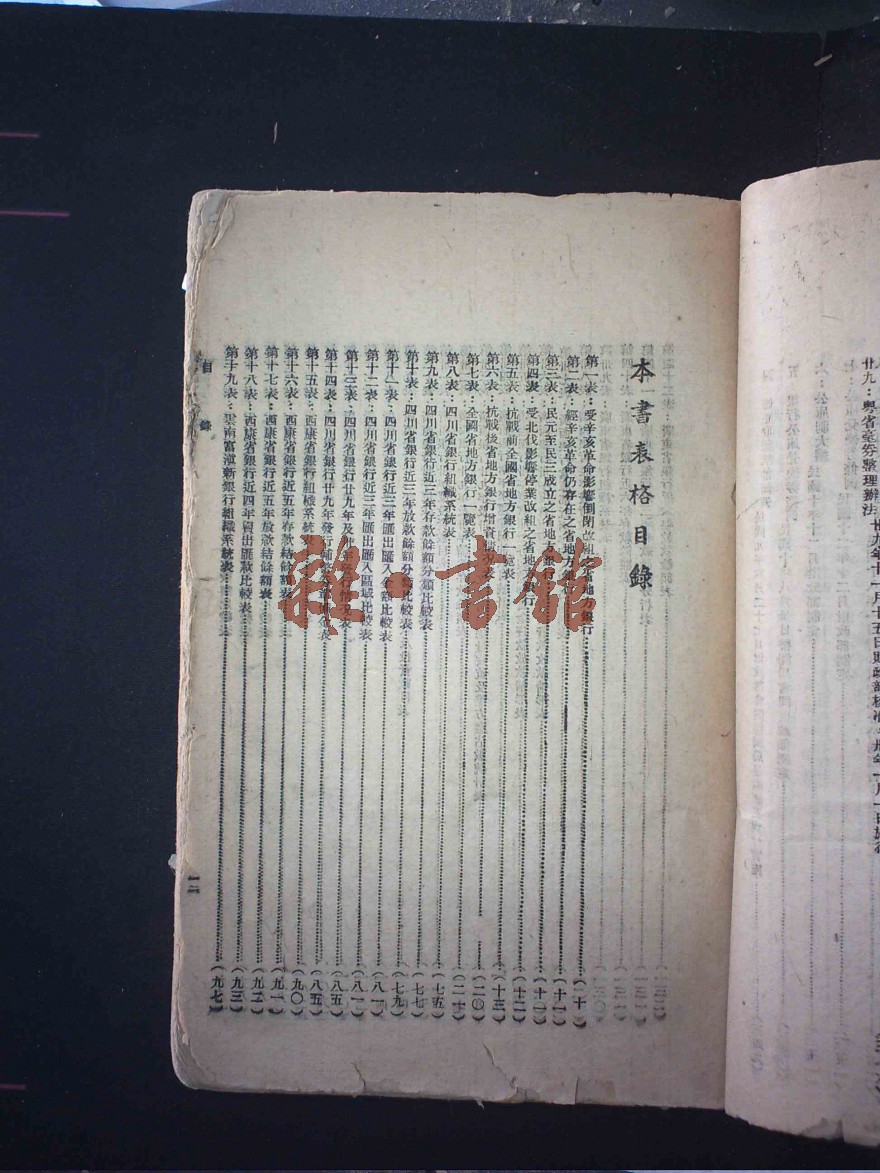 本書表格目錄
第一表：受辛亥革命影響倒閉改組之省地方銀行（十）
第二表：經辛亥革命仍存在之省地方銀行（十一）
第三表：民元至民三成立之省地方銀行（十一）
第四表：受北伐影響停業改組之省地方銀行（十二）
第五表：抗戰前全國省地方銀行一覽表（十三）
第六表：抗戰後省地方銀行增資概況表
第七表：全國省地方銀行一覽表（二〇）
第八表：四川省銀行組織系統表（七五）
第九表：四川省銀行近三年存款餘額分類比較表（七七）
第十表：四川省銀行近三年放款餘額分類比較表（七九）
第十一表：四川省銀行近三年匯出匯入金額比較表（八一）
第十二表：四川省銀行近三年匯出匯入區域比較表（八一）
第十三表：四川省銀行廿九年及卅年發行情況表（八五）
第十四表：四川省銀行廿九年發行輔幣券（八五）
第十五表：西康省銀行組織系統表（九〇）
第十六表：西康省銀行近五年存款結餘額表（九一）
第十七表：西康省銀行近五年放款結餘額表（九二）
第十八表：西康省銀行近四年匯出匯款比較表（九三）
第十九表：雲南富滇新銀行組織系統表（九七）
目錄
一二
廿九：粵省毫券整理辦法
龍書館